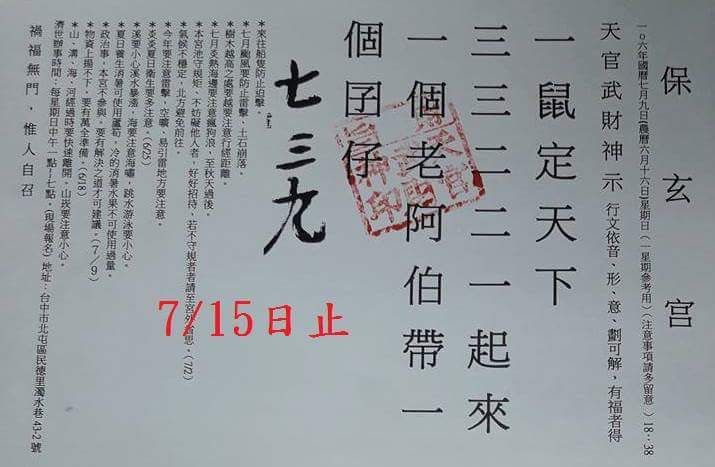 保玄宮
一０六年國曆七月九日(農曆六月十六日)星期日(一星期參考用)(注意事項請多留意)18：38
天官武財神示 行文依音、形、意、劃可解，有福者得
一鼠定天下
三三二二一起來
一個老阿伯帶一
個囝仔
七三九
7/15日止
＊來往船隻防止迫擊。
＊七月颱風要防止雷擊、土石崩落。
＊樹木越高之處要越要注意行經距離。
＊七月炎熱海邊要注意瘋狗浪、至秋天過後。
＊本宮池守規矩、不妨礙他人者，好好招待，若不守規者者請至宮外省思。(7/2)
＊氣候不穩定，北方避免前往。
＊今年要注意雷擊，空曠、易引雷地方要注意。
＊炎炎夏日衛生要多注意。(6/25)
＊溪要小心溪水暴漲，海要注意海嘯，跳水游泳要小心。
＊夏日養生消暑可使用蘆筍，冷的消暑水果不可使用過量。
＊政治事，本宮不參與，要有解決之道才可建議。(7/9)
＊物資上揚不下，要有萬全準備。(6/18)
＊山、溝、海、河經過時要快速離開，山崁要注意小心。
濟世辦事時間：每星期日中午一點~七點。(現場報名)地址：台中市北屯區民德里濁水巷43-2號
禍福無門，惟人自召